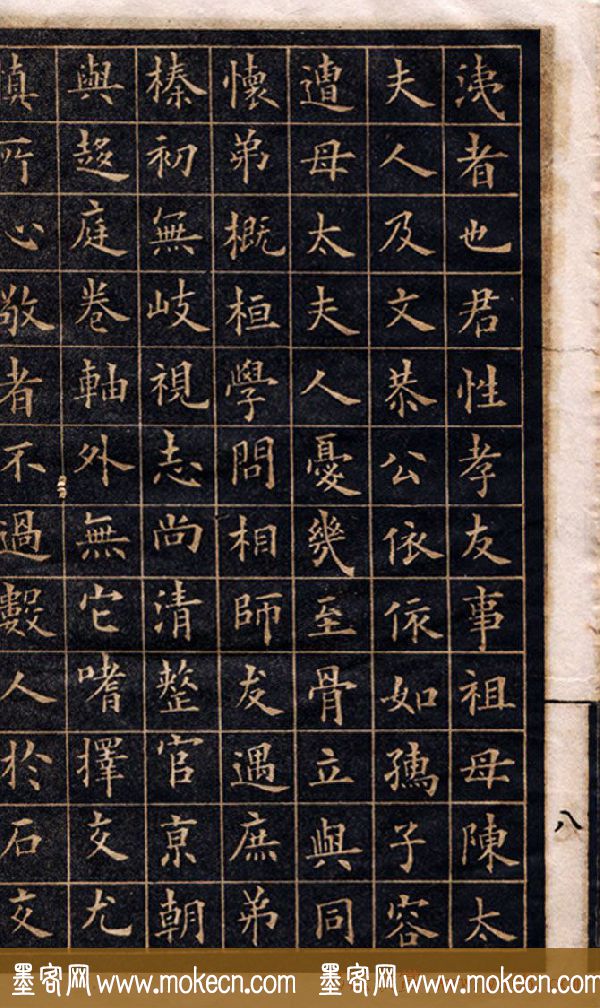 洟者也君性孝友事祖母陳太
夫人及文恭公依依如孺子容
遭母太夫人憂幾至骨立與同
懷弟概桓學問相師友遇庶弟
榛初無歧視志尚清整官京朝
與趍庭卷軸外無它嗜擇交尤
慎所心敬者不過數人於石交
八
墨客网 www.mokecn.com 墨客网 www.mokecn.com